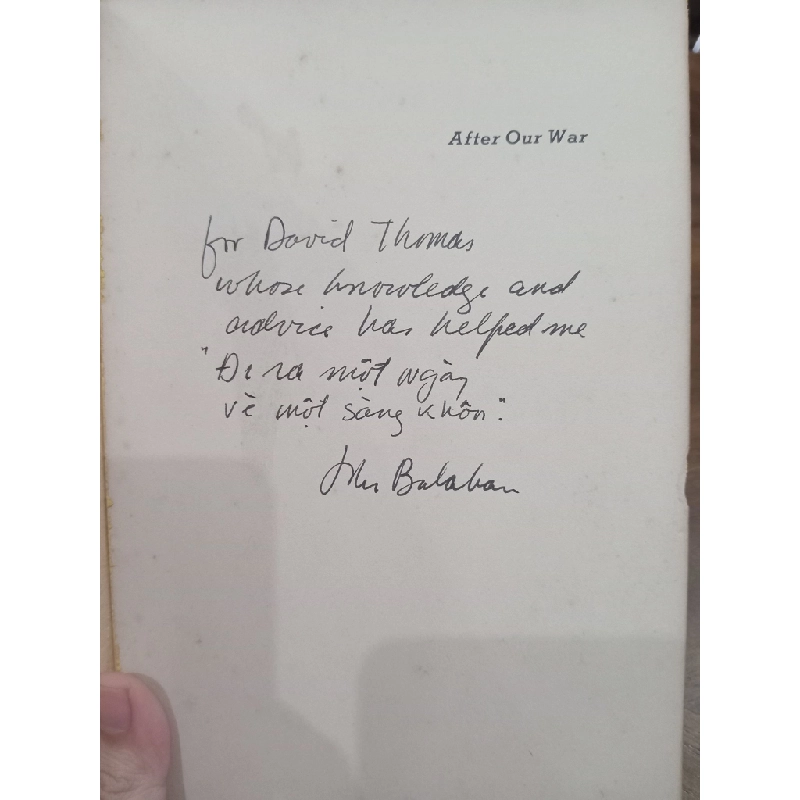 After Our War
for David Thomas
whose knowledge and
advice has helped me
"Đi ra một ngày
về một sàng khôn".
John Balaban